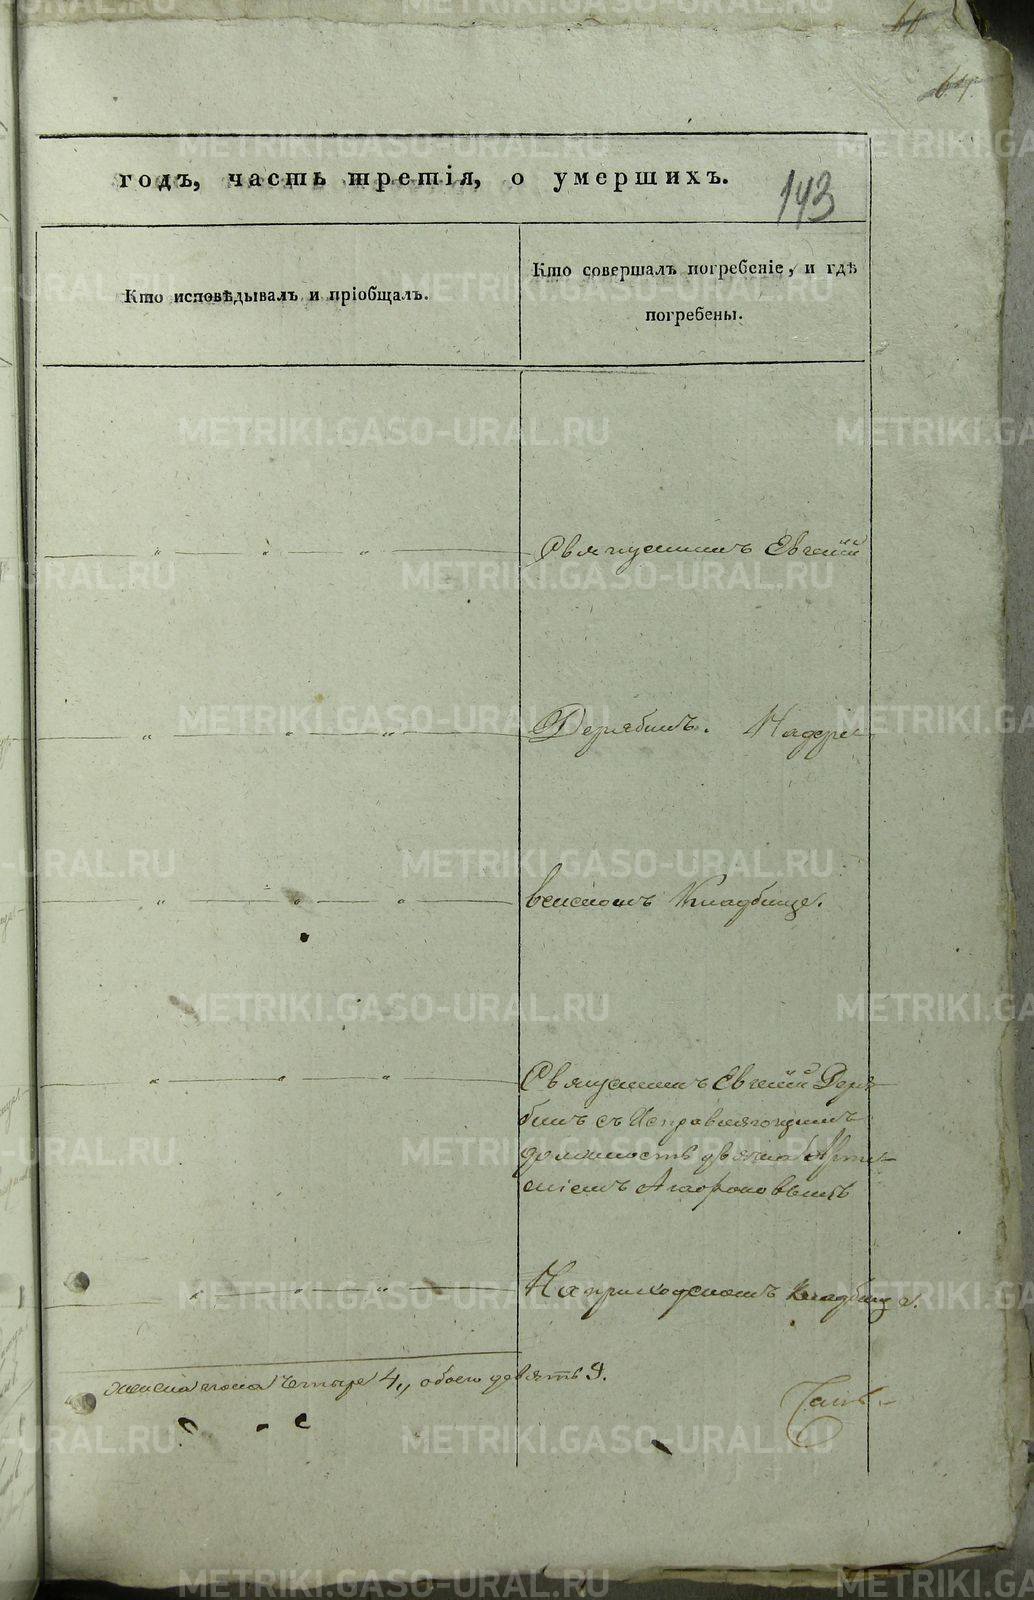 64.
годъ, часть третія, о умершихъ.
143
Кто исповѣдывалъ и пріобщалъ.
Кто совершалъ погребеніе, и гдѣ
погребены.
Священникъ Евгеній
Дерябинъ. На дере-
венскомъ Кладбище.
Священникъ Евгеній Деря-
бинъ съ Исправляющимъ
должность дьячка
На приходскомъ кладбище.
женска пола четыре 4, обоего девять 9.
METRIKI.GASO-URAL.RU